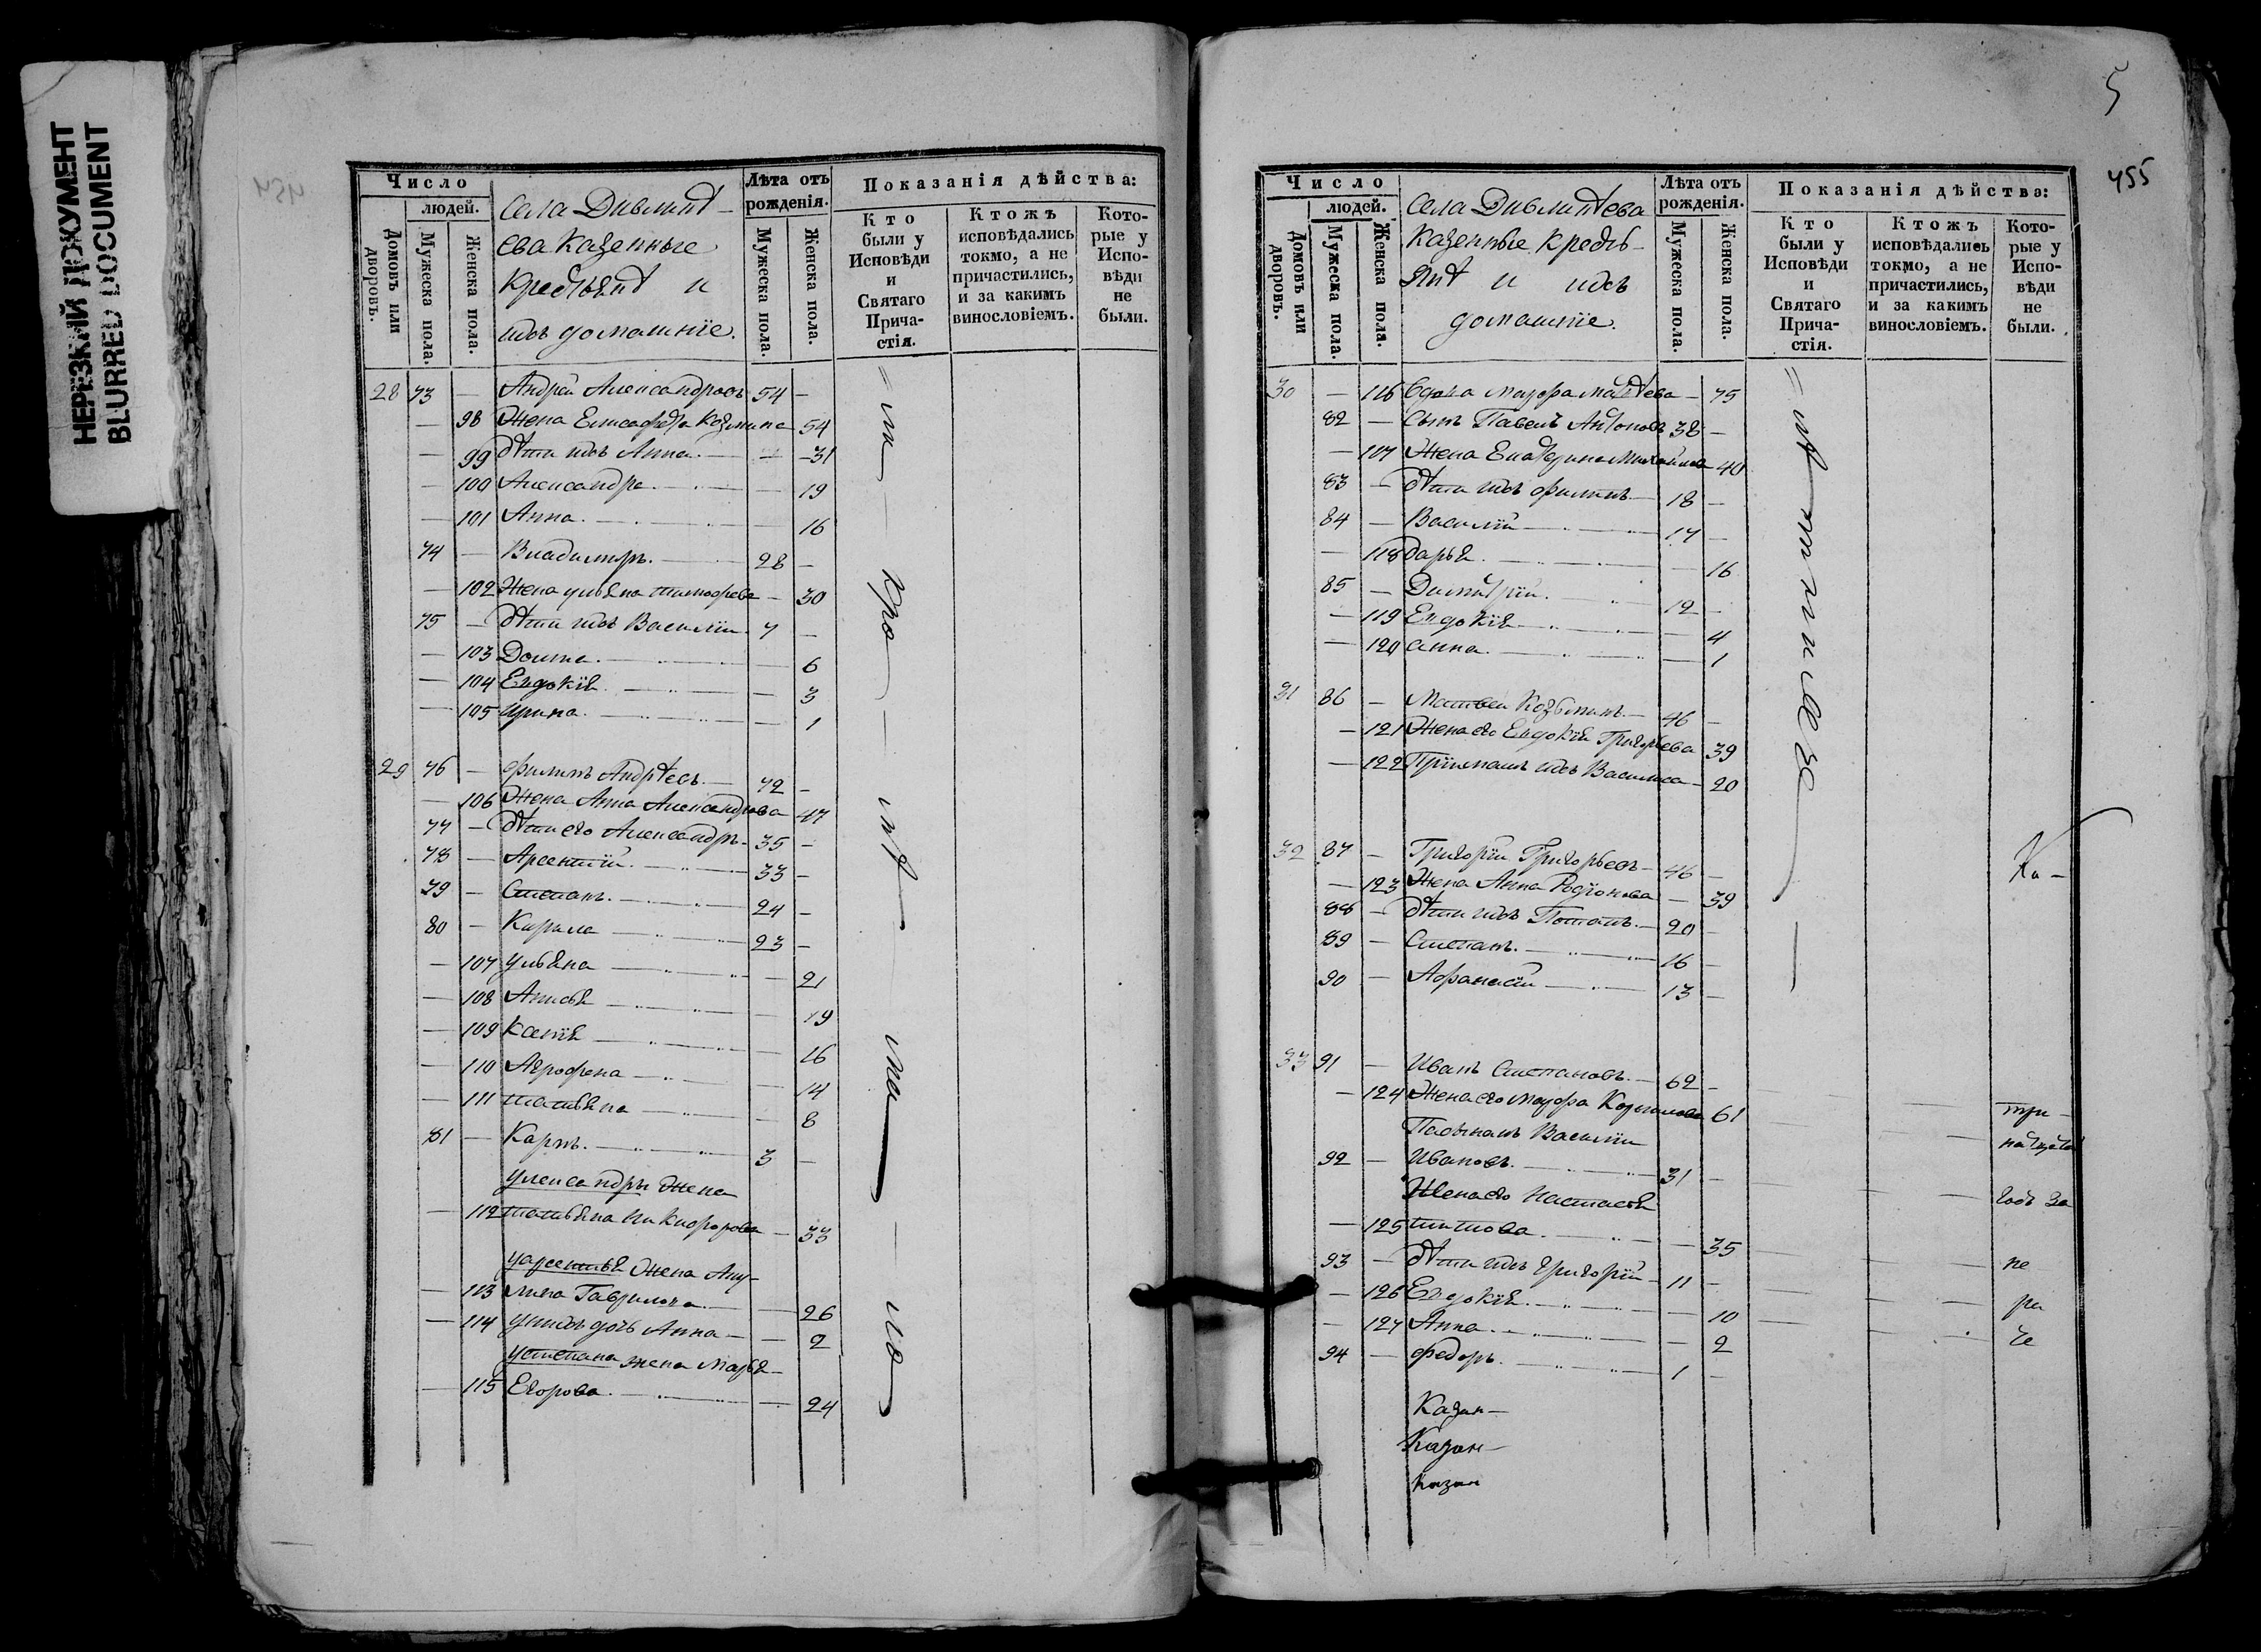 НЕРЕЗКИЙ ДОКУМЕНТ
BLURRED DOCUMENT
Число
людей.
Домовъ или дворовъ.
Мужеска пола.
Женска пола.
Лѣта отъ рожденія.
Мужеска пола.
Женска пола.
Показанія дѣйства:
Кто были у Исповѣди и Святаго Прича-стія.
Ктожъ исповѣдались токмо, а не причастились, и за какимъ винословіемъ.
Кото-рые у Испо-вѣди не были.
казенные
крестьянѣ и
ихъ домашніе.
28 73 — Андрей Александровъ 54 —
— 98 Жена Елисафета Козмина 54
— 99 дѣти ихъ Анна — 31
— 100 Александра — 19
— 101 Анна — 16
74 — Владимиръ 28 —
— 102 Жена ульяна тимофеева — 30
75 — дѣти ихъ Василіи 7 —
— 103 Домна — 6
— 104 Евдокія — 3
— 105 Ирина — 1
29 76 — филипъ Андрѣевъ 72 —
— 106 Жена Анна Александрова 47
77 — дѣти его Александръ 35 —
78 — Арсентій 33 —
79 — Степанъ 24 —
80 — Кирила 23 —
— 107 ульяна — 21
— 108 Анисья — 19
— 109 Ксенія — 16
— 110 Агрофена — 14
— 111 татьяна — 8
81 — Карпъ 3 —
уалександры Жена
— 112 татьяна Никифорова — 33
уарсентья Жена Аку-
— 113 лина Гаврилова — 26
— 114 унихъ дочь Анна — 2
устепана жена Марья
— 115 Егорова — 24
5
455
Число
людей.
Домовъ или дворовъ.
Мужеска пола.
Женска пола.
Лѣта отъ рожденія.
Мужеска пола.
Женска пола.
Показанія дѣйства:
Кто были у Исповѣди и Святаго Прича-стія.
Ктожъ исповѣдались токмо, а не причастились, и за какимъ винословіемъ.
Кото-рые у Испо-вѣди не были.
казенные кресть-
янѣ и ихъ
домашніе.
30 — 116 Вдова Мавра Матвѣева — 75
82 — Сынъ Павелъ Антоновъ 38 —
— 117 Жена Екатерина Михайлова 40
83 — дѣти ихъ филипъ 18 —
84 — Василій 17 —
— 118 дарья — 16
85 — Димитрій 12 —
— 119 Евдокія — 4
— 120 анна — 1
31 86 — Матвеи Козьминъ 46 —
— 121 Жена его Евдокія Григорьева 39
— 122 Пріемышъ ихъ Василиса — 20
32 87 — Григоріи Григорьевъ 46 —
— 123 Жена Анна Родіонова — 39
88 — дѣти ихъ Потапъ 20 —
89 — Степанъ 16 —
90 — Афанасій 13 —
33 91 — Иванъ Степановъ 62 —
— 124 Жена его Мавра 61
Василіи
92 — Ивановъ 31 —
Жена его Настасья
— 125 титова — 35
93 — дѣти ихъ григорій 11 —
— 126 Евдокія — 10
— 127 Анна — 2
94 — федоръ 1 —
Казан—
Казан—
Казан